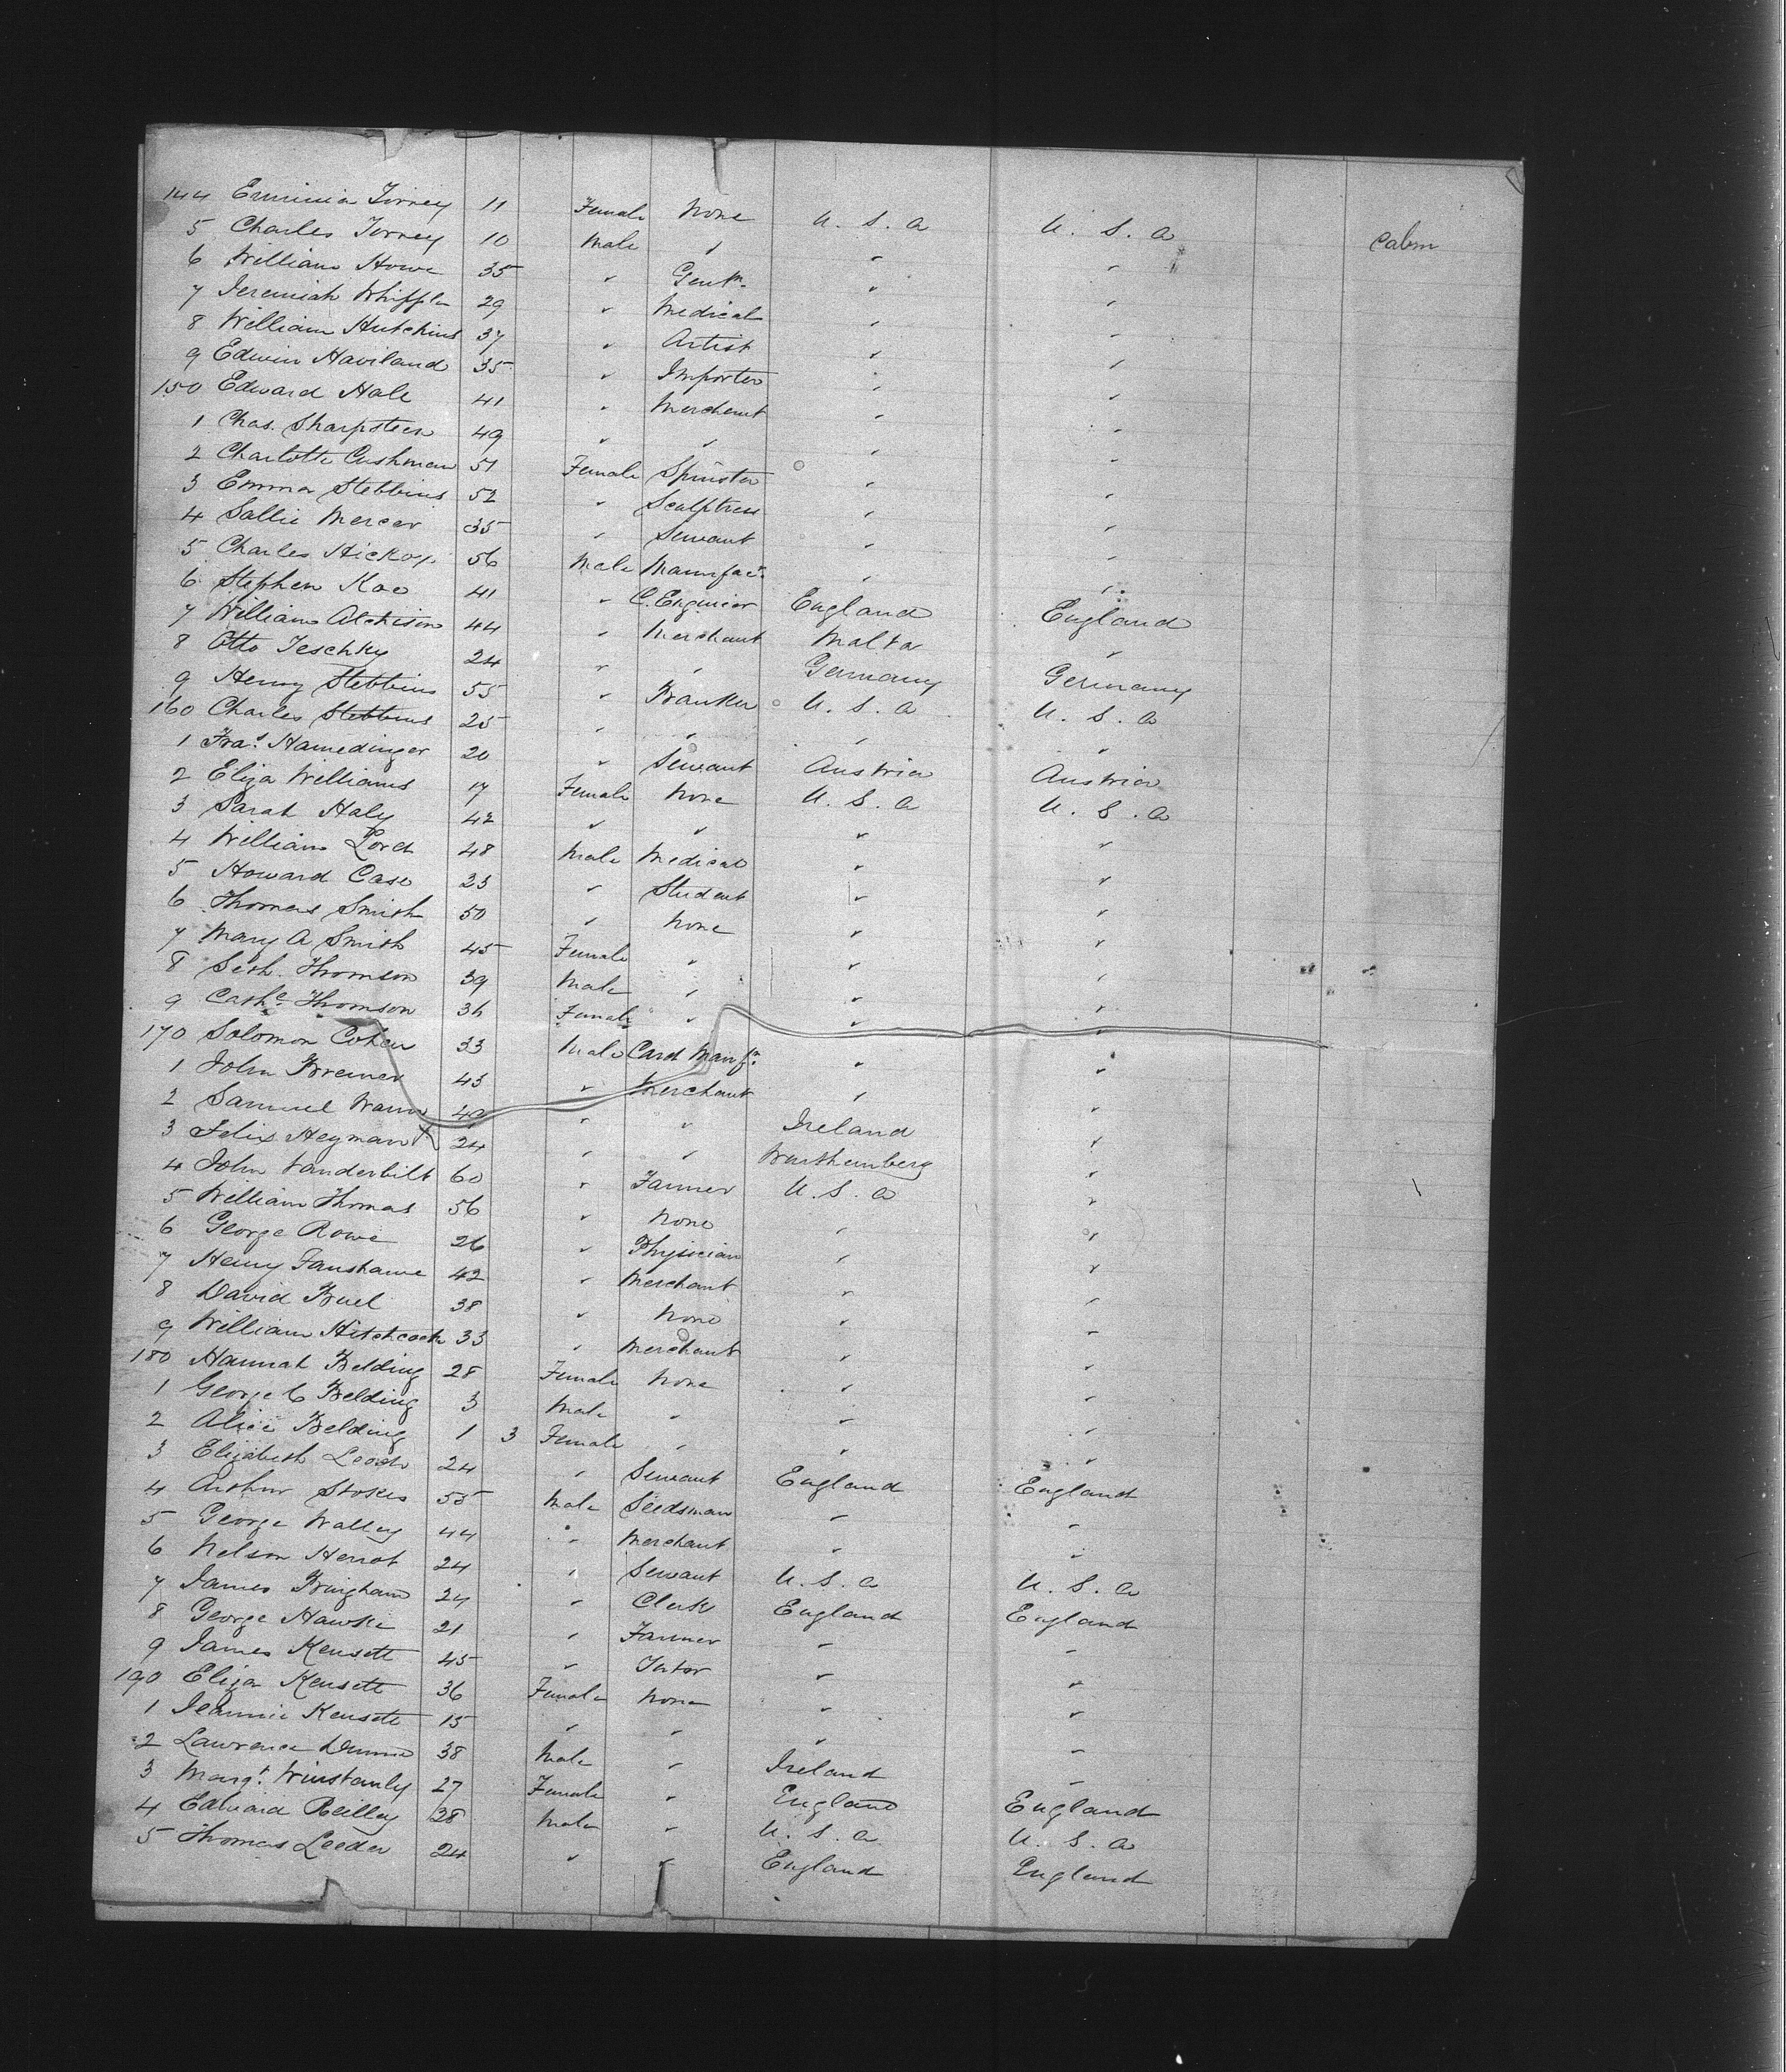 144 Erminia Torrey 11 Female None U.S.a U.S.a Cabin
5 Charles Torrey 10 Male " " "
6 William Howe 35 " Gentn. " "
7 Jeremiah Whipple 29 " Medical " "
8 William Hutchins 37 " Artist " "
9 Edwin Haviland 35 " Importer " "
150 Edward Hale 41 " Merchant " "
1 Chas. Sharpsteen 49 " " " "
2 Charlotte Cushman 51 Female Spinster " "
3 Emma Stebbins 52 " Sculptress " "
4 Sallie Mercer 35 " Servant " "
5 Charles Hickox 56 Male Manufacr. " "
6 Stephen Koe 41 " C. Engineer England England
7 William Atchison 44 " Merchant Malta "
8 Otto Jeschky 24 " " Germany Germany
9 Henry Stebbins 55 " Banker U.S.a U.S.a
160 Charles Stebbins 25 " " " "
1 Fras. Hamedinger 20 " Servant Austria Austria
2 Eliza Williams 17 Female None U.S.a U.S.a
3 Sarah Haly 42 " " " "
4 William Lord 48 Male Medical " "
5 Howard Case 23 " Student " "
6 Thomas Smith 50 " None " "
7 Mary A Smith 45 Female " " "
8 Seth. Thomson 39 Male " " "
9 Cathe. Thomson 36 Female " " "
170 Solomon Cohen 33 Male Card Manfr. " "
1 John Bremer 43 " Merchant " "
2 Samuel Wann 40 " " Ireland "
3 Felix Heyman 24 " " Wurthemberg "
4 John Vanderbilt 60 " Farmer U.S.a "
5 William Thomas 56 " None " "
6 George Rowe 26 " Physician " "
7 Henry Fanshawe 42 " Merchant " "
8 David Buel 38 " None " "
9 William Hitchcock 33 " Merchant " "
180 Hannah Belding 28 Female None " "
1 George C Belding 3 Male " " "
2 Alice Belding 1 3 Female " " "
3 Elizabeth Leach 24 " Servant England England
4 Arthur Stokes 55 Male Seedsman " "
5 George Walley 44 " Merchant " "
6 Nelson Heriot 24 " Servant U.S.a U.S.a
7 James Bingham 24 " Clerk England England
8 George Hawke 21 " Farmer " "
9 James Kensett 45 " Tutor " "
190 Eliza Kensett 36 Female None " "
1 Jeannie Kensett 15 " " " "
2 Lawrence Dunne 38 Male " Ireland "
3 Margt. Winstanly 27 Female " England England
4 Edward Reilley 28 Male " U.S.a U.S.a
5 Thomas Leeder 24 " " England England